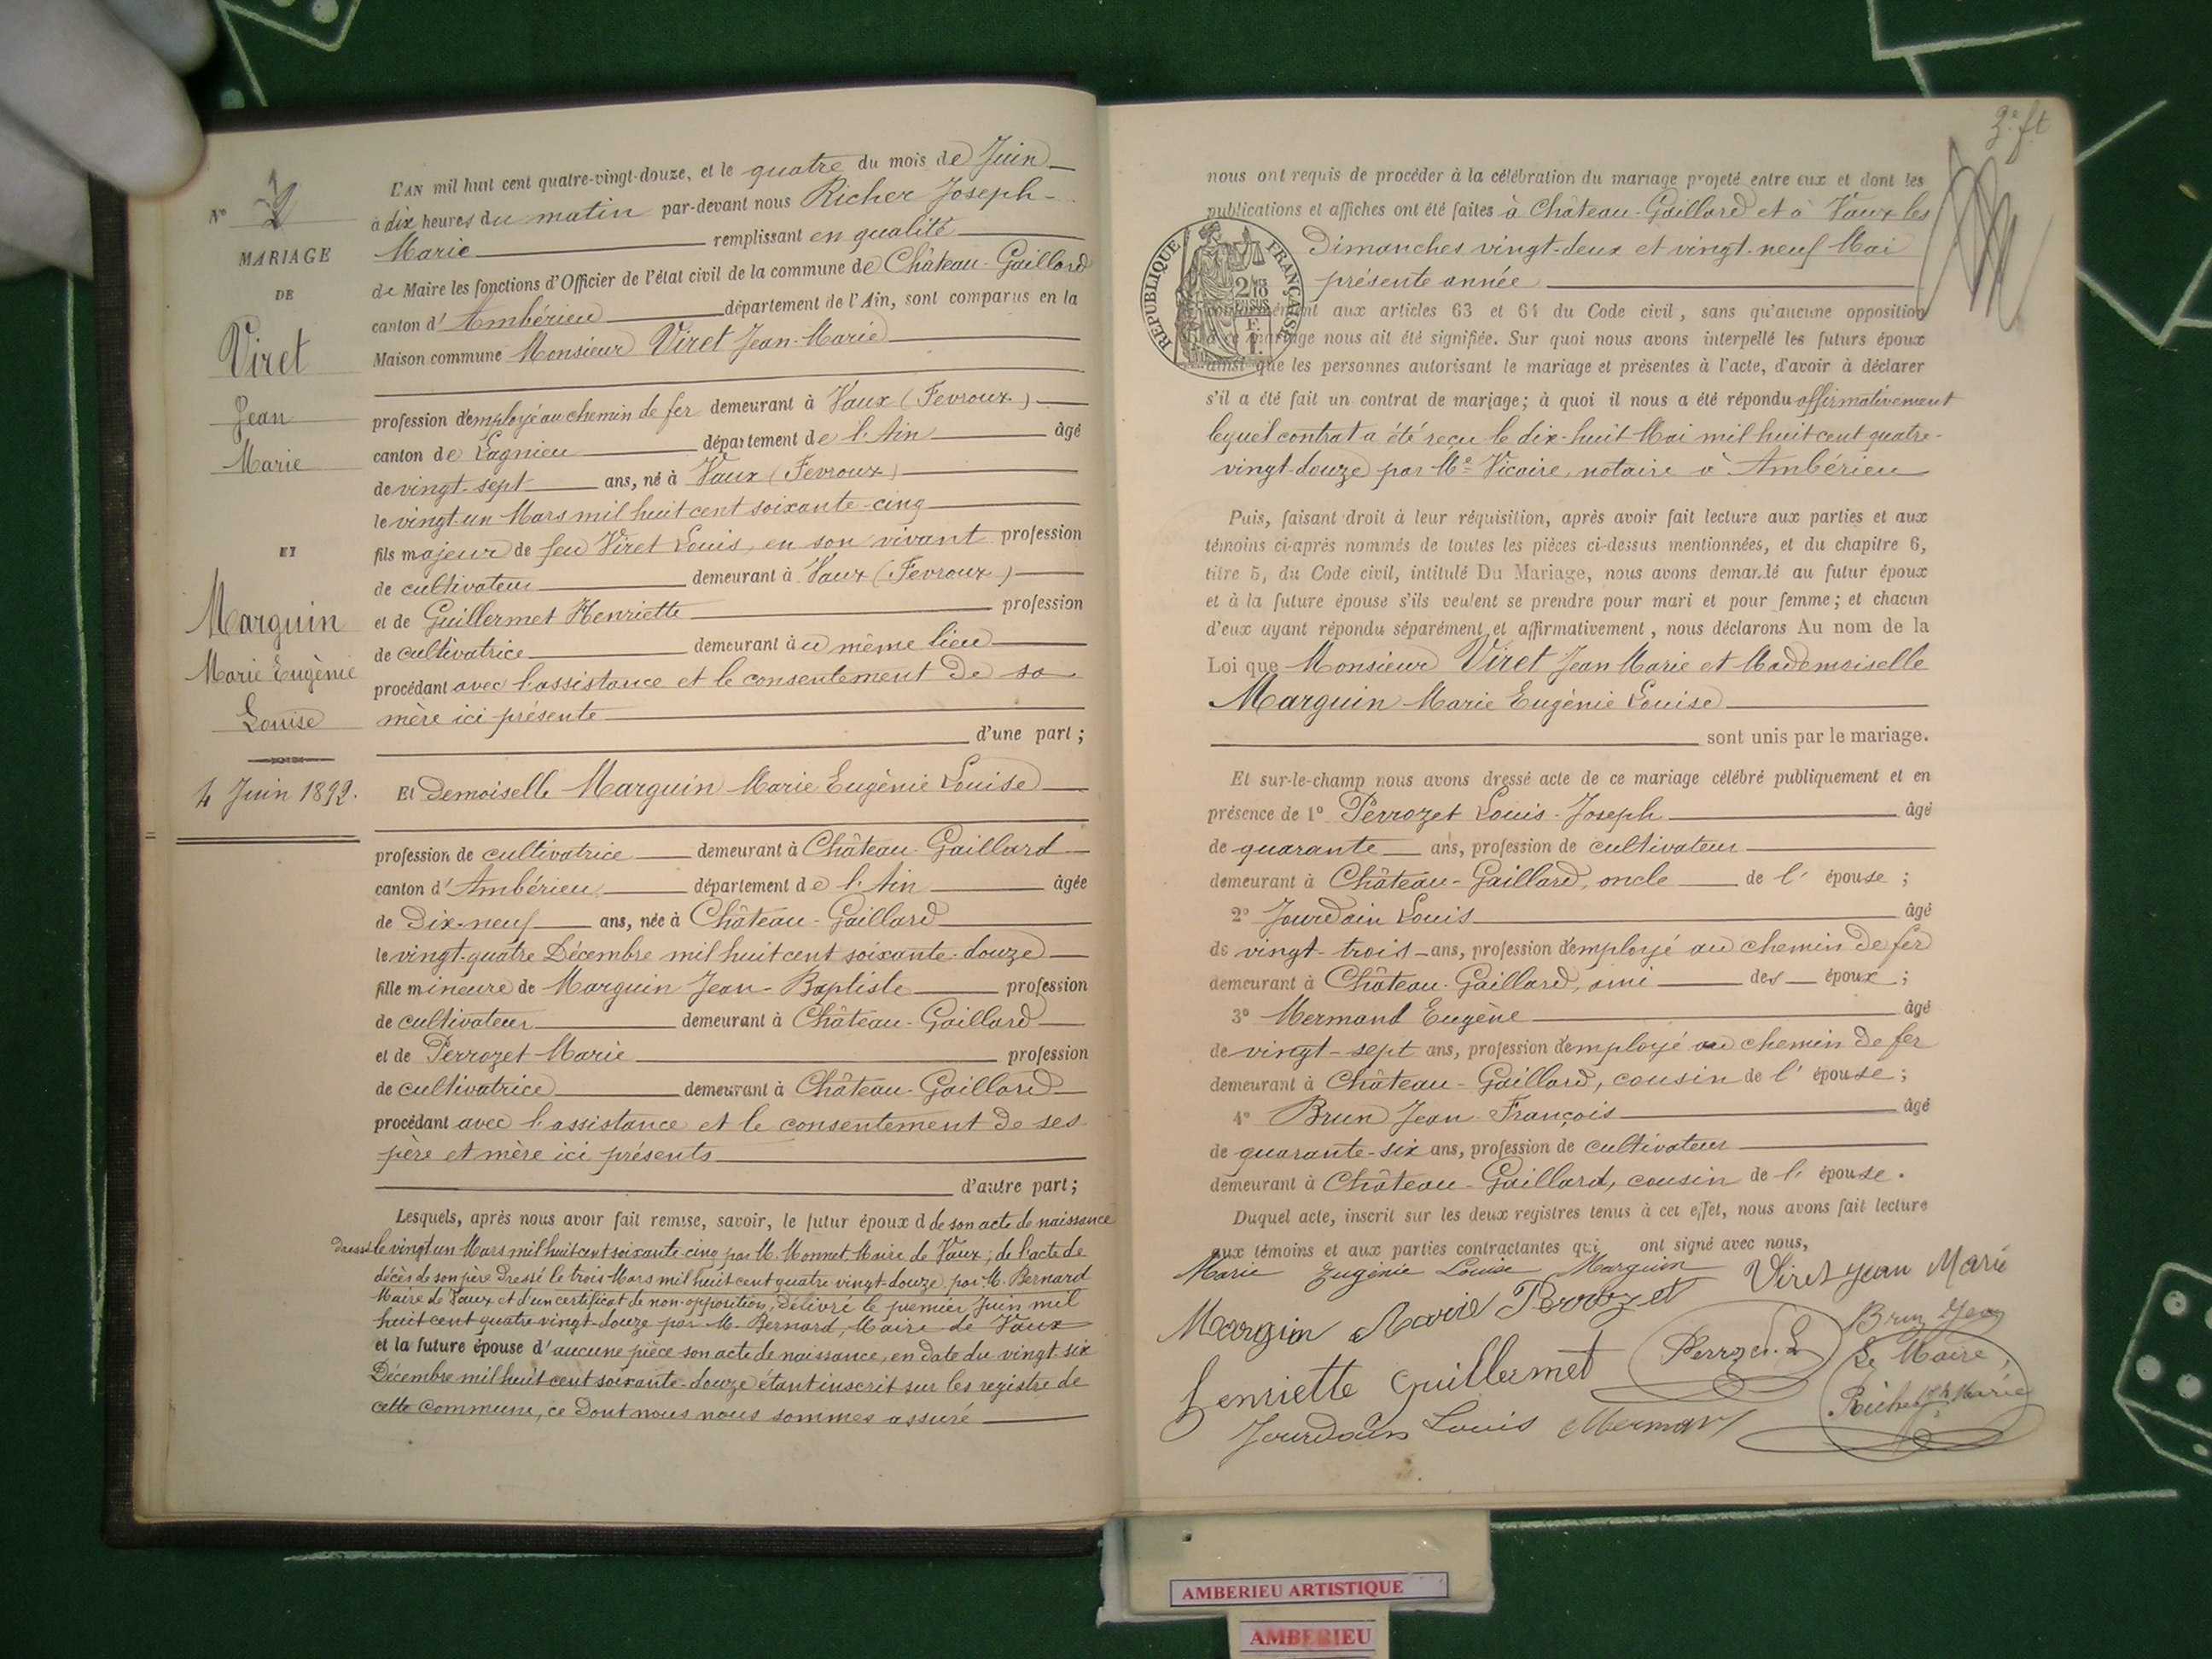 N° 2
MARIAGE
DE
Viret
Jean
Marie
ET
Marguin
Marie Eugénie
Louise
4 Juin 1892.
L'AN mil huit cent quatre-vingt-douze, et le quatre du mois de Juin
à dix heures du matin par-devant nous Richer Joseph-
Marie remplissant en qualité
de Maire les fonctions d'Officier de l'état civil de la commune de Château-Gaillard
canton d'Ambérieu département de l'Ain, sont comparus en la
Maison commune Monsieur Viret Jean-Marie
profession d'employé au chemin de fer demeurant à Vaux (Fevroux)
canton de Lagnieu département de l'Ain âgé
de vingt-sept ans, né à Vaux (Fevroux)
le vingt-un Mars mil huit cent soixante-cinq
fils majeur de feu Viret Louis, en son vivant profession
de cultivateur demeurant à Vaux (Fevroux)
et de Guillermet Henriette profession
de cultivatrice demeurant au même lieu
procédant avec l'assistance et le consentement de sa
mère ici présente
d'une part;
Et Demoiselle Marguin Marie Eugénie Louise
profession de cultivatrice demeurant à Château-Gaillard
canton d'Ambérieu département de l'Ain âgée
de Dix-neuf ans, née à Château-Gaillard
le vingt-quatre Décembre mil huit cent soixante-douze
fille mineure de Marguin Jean-Baptiste profession
de cultivateur demeurant à Château-Gaillard
et de Perrozet Marie profession
de cultivatrice demeurant à Château-Gaillard
procédant avec l'assistance et le consentement de ses
père et mère ici présents
d'autre part;
Lesquels, après nous avoir fait remise, savoir, le futur époux d de son acte de naissance
dressé le vingt un Mars mil huit cent soixante-cinq par M. Monnet Maire de Vaux; de l'acte de
décès de son père dressé le trois Mars mil huit cent quatre vingt-douze par M. Bernard
Maire de Vaux et d'un certificat de non-opposition, délivré le premier Juin mil
huit cent quatre-vingt-douze par M. Bernard, Maire de Vaux
et la future épouse d'aucune pièce son acte de naissance, en date du vingt-six
Décembre mil huit cent soixante-douze étant inscrit sur les registre de
cette commune, ce dont nous nous sommes assuré
2e ft
nous ont requis de procéder à la célébration du mariage projeté entre eux et dont les
publications et affiches ont été faites à Château-Gaillard et à Vaux les
Dimanches vingt-deux et vingt-neuf Mai
présente année
RÉPUBLIQUE FRANÇAISE
2/10 EN SUS
conformément aux articles 63 et 64 du Code civil, sans qu'aucune opposition
à ce mariage nous ait été signifiée. Sur quoi nous avons interpellé les futurs époux
ainsi que les personnes autorisant le mariage et présentes à l'acte, d'avoir à déclarer
s'il a été fait un contrat de mariage; à quoi il nous a été répondu affirmativement
lequel contrat a été reçu le dix-huit Mai mil huit cent quatre-
vingt-douze par Me Vicaire, notaire à Ambérieu
Puis, faisant droit à leur réquisition, après avoir fait lecture aux parties et aux
témoins ci-après nommés de toutes les pièces ci-dessus mentionnées, et du chapitre 6,
titre 5, du Code civil, intitulé Du Mariage, nous avons demandé au futur époux
et à la future épouse s'ils veulent se prendre pour mari et pour femme; et chacun
d'eux ayant répondu séparément et affirmativement, nous déclarons Au nom de la
Loi que Monsieur Viret Jean Marie et Mademoiselle
Marguin Marie Eugénie Louise
sont unis par le mariage.
Et sur-le-champ nous avons dressé acte de ce mariage célébré publiquement et en
présence de 1° Perrozet Louis-Joseph âgé
de quarante ans, profession de cultivateur
demeurant à Château-Gaillard, oncle de l'épouse;
2° Jourdain Louis âgé
de vingt-trois ans, profession d'employé au chemin de fer
demeurant à Château-Gaillard, ami des époux;
3° Mermand Eugène âgé
de vingt-sept ans, profession d'employé au chemin de fer
demeurant à Château-Gaillard, cousin de l'épouse;
4° Brun Jean-François âgé
de quarante-six ans, profession de cultivateur
demeurant à Château-Gaillard, cousin de l'épouse.
Duquel acte, inscrit sur les deux registres tenus à cet effet, nous avons fait lecture
aux témoins et aux parties contractantes qui ont signé avec nous,
Marie Eugénie Louise Marguin Viret Jean Marie
Margin Marie Perrozet Brun Jean
henriette Guillermet Perrozet L Le Maire,
Jourdain Louis Mermand Richer Jh Marie
AMBERIEU ARTISTIQUE
AMBERIEU